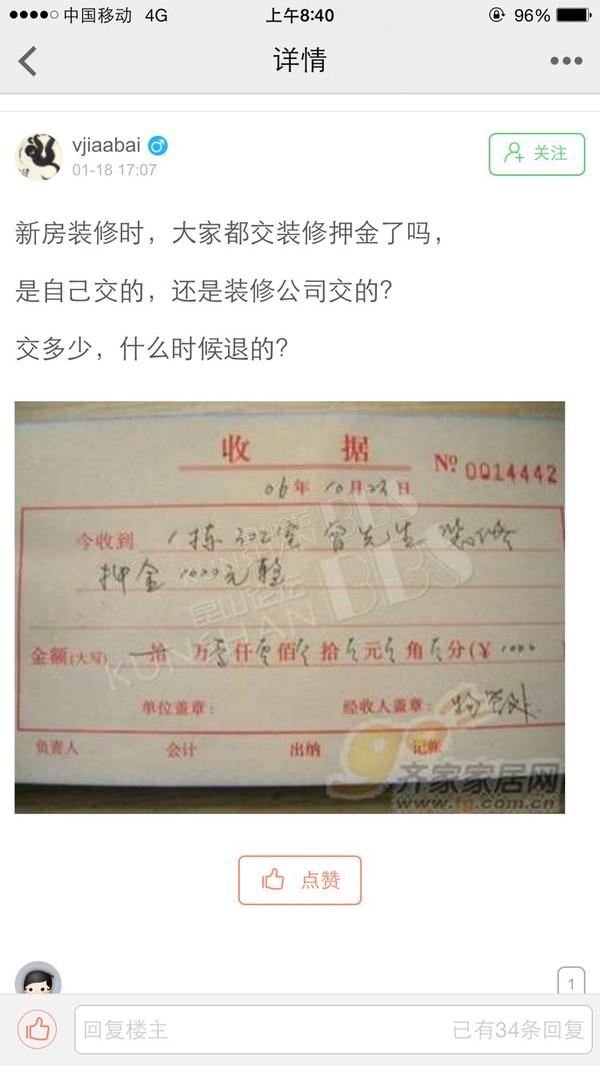 中国移动 4G 上午8:40 96%
详情
vjiaabai
01-18 17:07
关注
新房装修时，大家都交装修押金了吗，
是自己交的，还是装修公司交的？
交多少，什么时候退的？
收 据
№ 0014442
06年 10月23日
今收到 1栋302室 曾先生 装修
押金 1000元整
金额(大写) 拾 万壹仟零佰零拾零元零角零分(¥ 1000 )
单位盖章： 经收人盖章：物管处
负责人 会计 出纳 记帐
昆山论坛
KUNSHAN BBS
KUNSHAN BBS
齐家家居网
www.tg.com.cn
点赞
1
回复楼主 已有34条回复